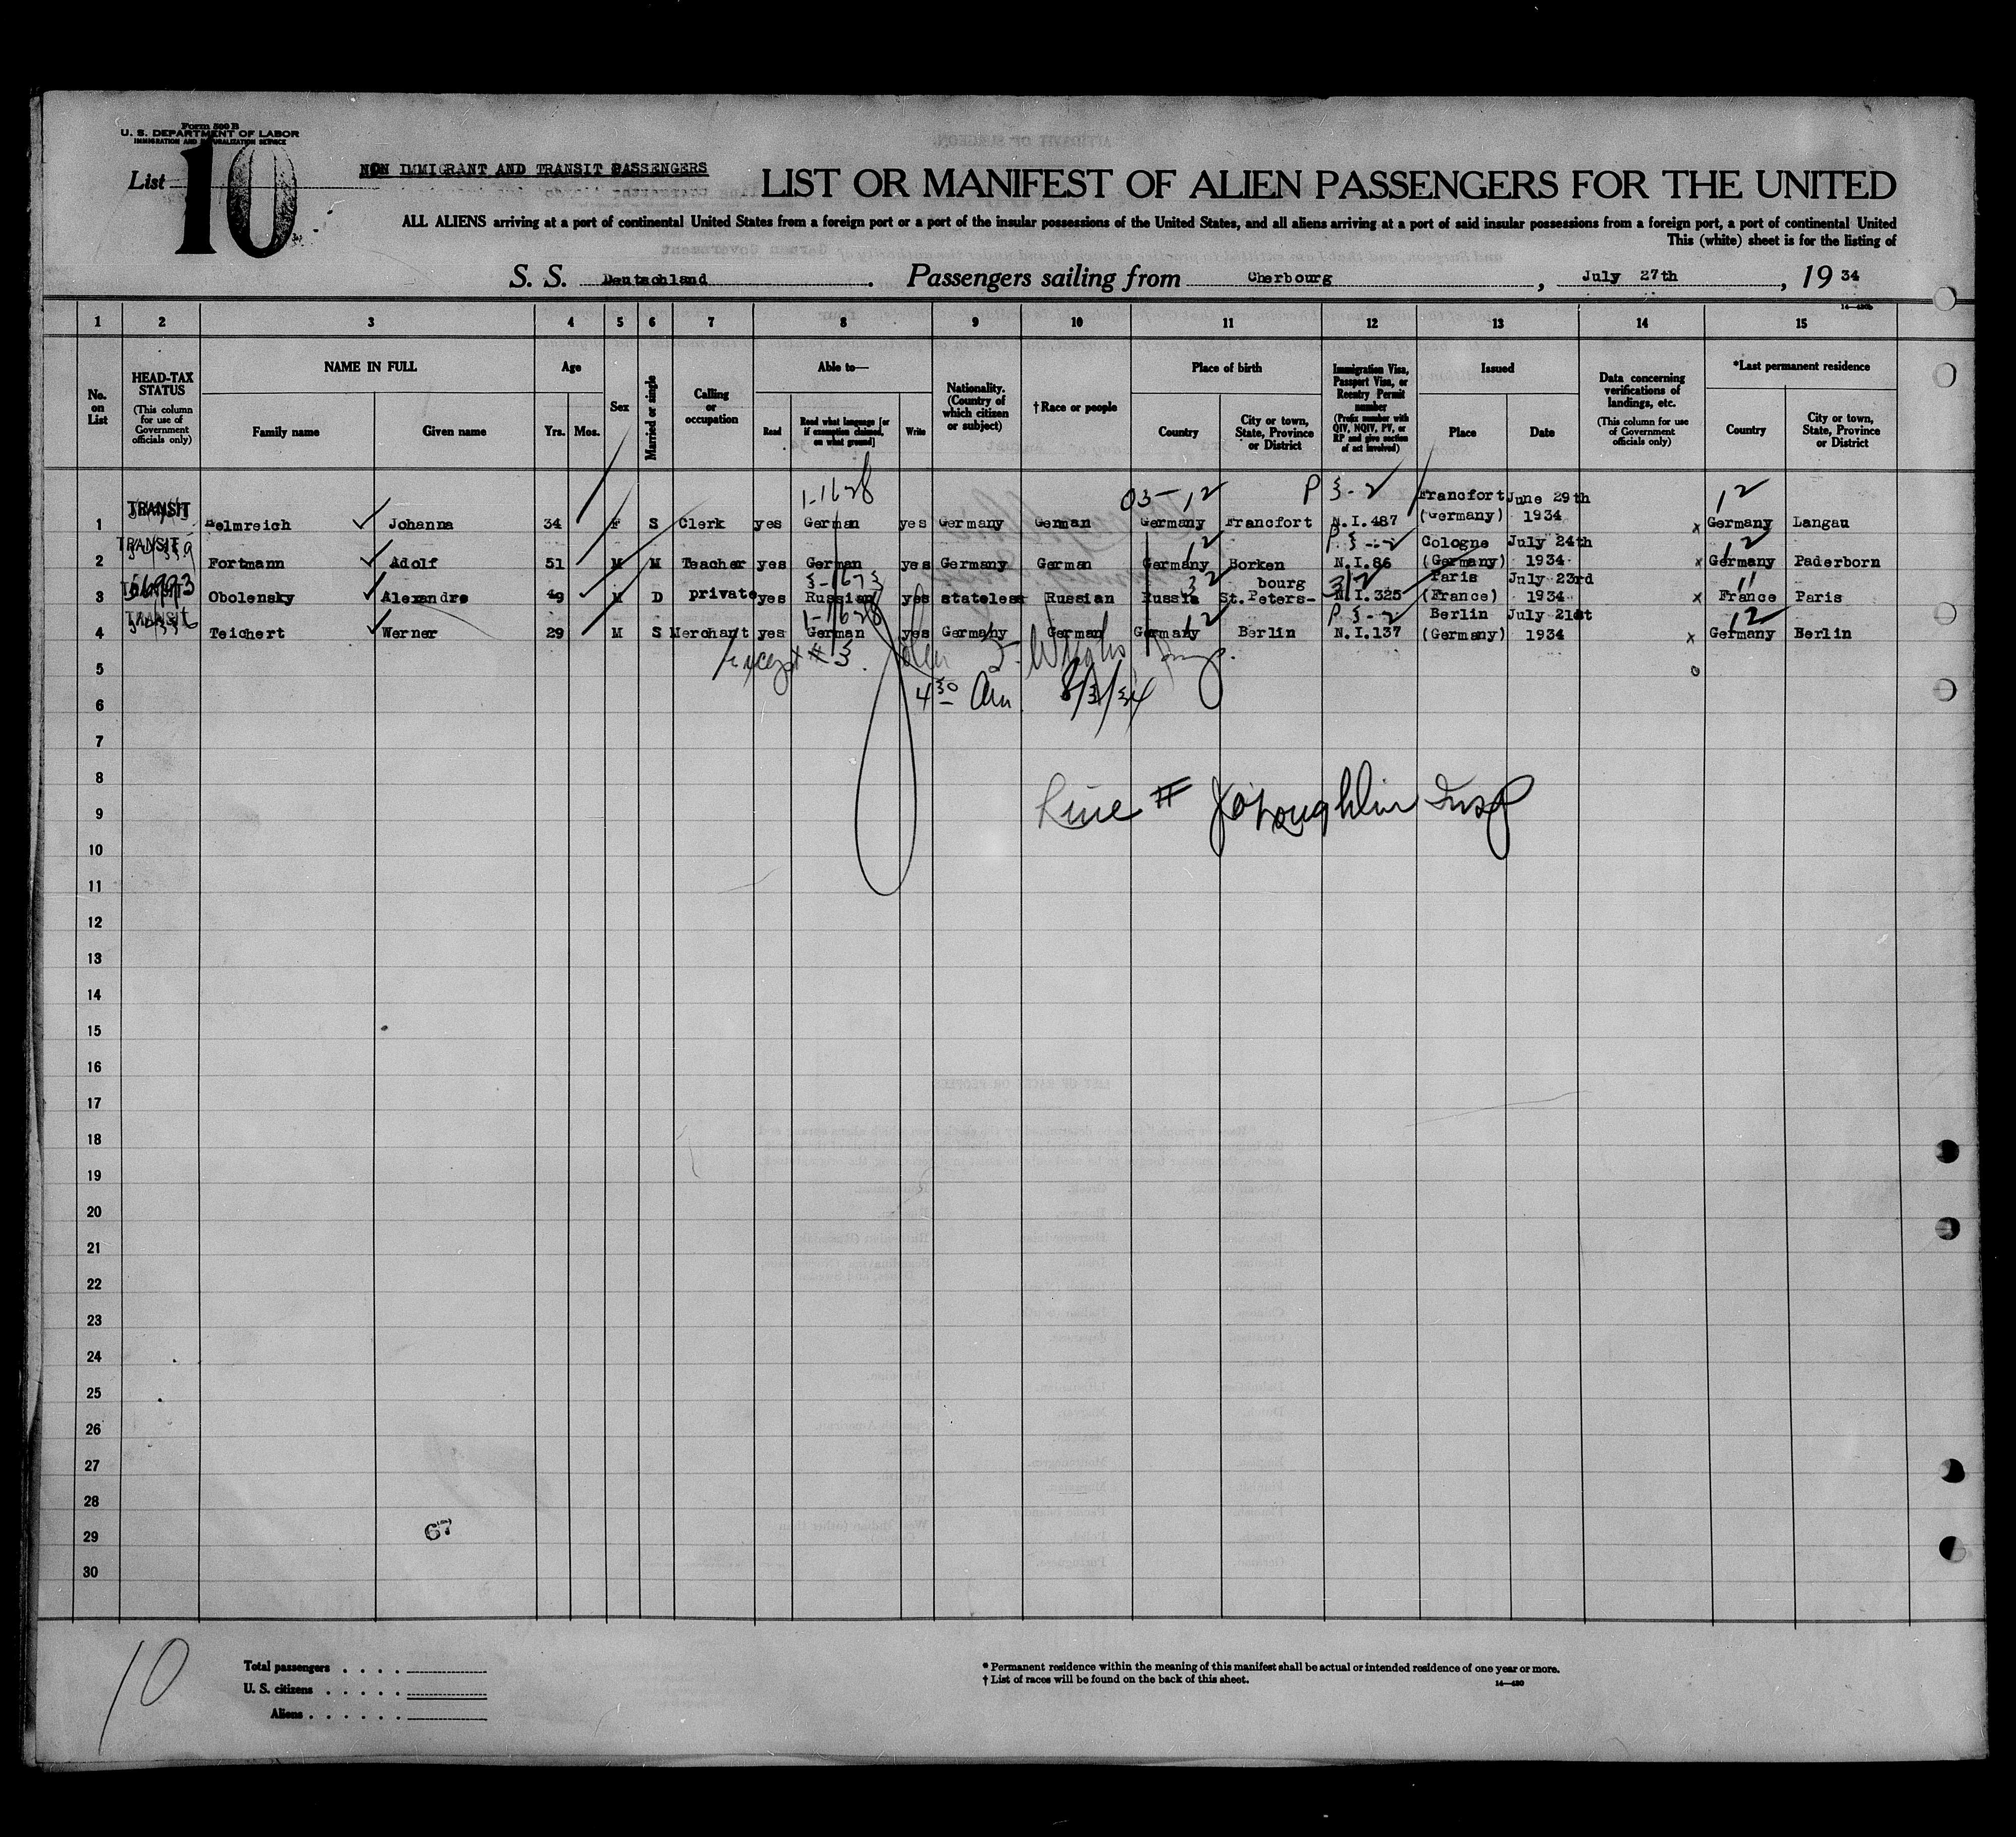 Form 500 B
U. S. DEPARTMENT OF LABOR
IMMIGRATION AND NATURALIZATION SERVICE
List 10
NON IMMIGRANT AND TRANSIT PASSENGERS
LIST OR MANIFEST OF ALIEN PASSENGERS FOR THE UNITED
ALL ALIENS arriving at a port of continental United States from a foreign port or a port of the insular possessions of the United States, and all aliens arriving at a port of said insular possessions from a foreign port, a port of continental United
This (white) sheet is for the listing of
S. S. Deutschland. Passengers sailing from Cherbourg, July 27th, 19 34
1 2 3 4 5 6 7 8 9 10 11 12 13 14 15
No. on List
HEAD-TAX STATUS (This column for use of Government officials only)
NAME IN FULL
Family name Given name
Age
Yrs. Mos.
Sex
Married or single
Calling or occupation
Able to—
Read Read what language [or if exemption claimed, on what ground] Write
Nationality. (Country of which citizen or subject)
† Race or people
Place of birth
Country City or town, State, Province or District
Immigration Visa, Passport Visa, or Reentry Permit number (Prefix number with QIV, NQIV, PV, or RP and give section of act involved)
Issued
Place Date
Data concerning verifications of landings, etc. (This column for use of Government officials only)
*Last permanent residence
Country City or town, State, Province or District
1-1628 03-12 P 3-2 12
1 TRANSIT Helmreich Johanna 34 F S Clerk yes German yes Germany German Germany Francfort N.I.487 Francfort (Germany) June 29th 1934 x Germany Langau
12 P 3-2 12
2 TRANSIT Fortmann Adolf 51 M M Teacher yes German yes Germany German Germany Borken N.I.86 Cologne (Germany) July 24th 1934 x Germany Paderborn
3 TRANSIT Obolensky Alexandre 49 M D private yes Russian yes stateless Russian Russia St.Peters-bourg N.I.325 Paris (France) July 23rd 1934 x France Paris
1-1628 12 P 3-2 12
4 TRANSIT Teichert Werner 29 M S Merchant yes German yes Germany German Germany Berlin N.I.137 Berlin (Germany) July 21st 1934 x Germany Berlin
Except # 3.
5
4 30 Am 8/3/34
6
7
8
Line # J O'Loughlin Insp
9
10
11
12
13
14
15
16
17
18
19
20
21
22
23
24
25
26
27
28
29
67
30
10
Total passengers . . . .
U. S. citizens . . . . .
Aliens . . . . . .
* Permanent residence within the meaning of this manifest shall be actual or intended residence of one year or more.
† List of races will be found on the back of this sheet.
14—480